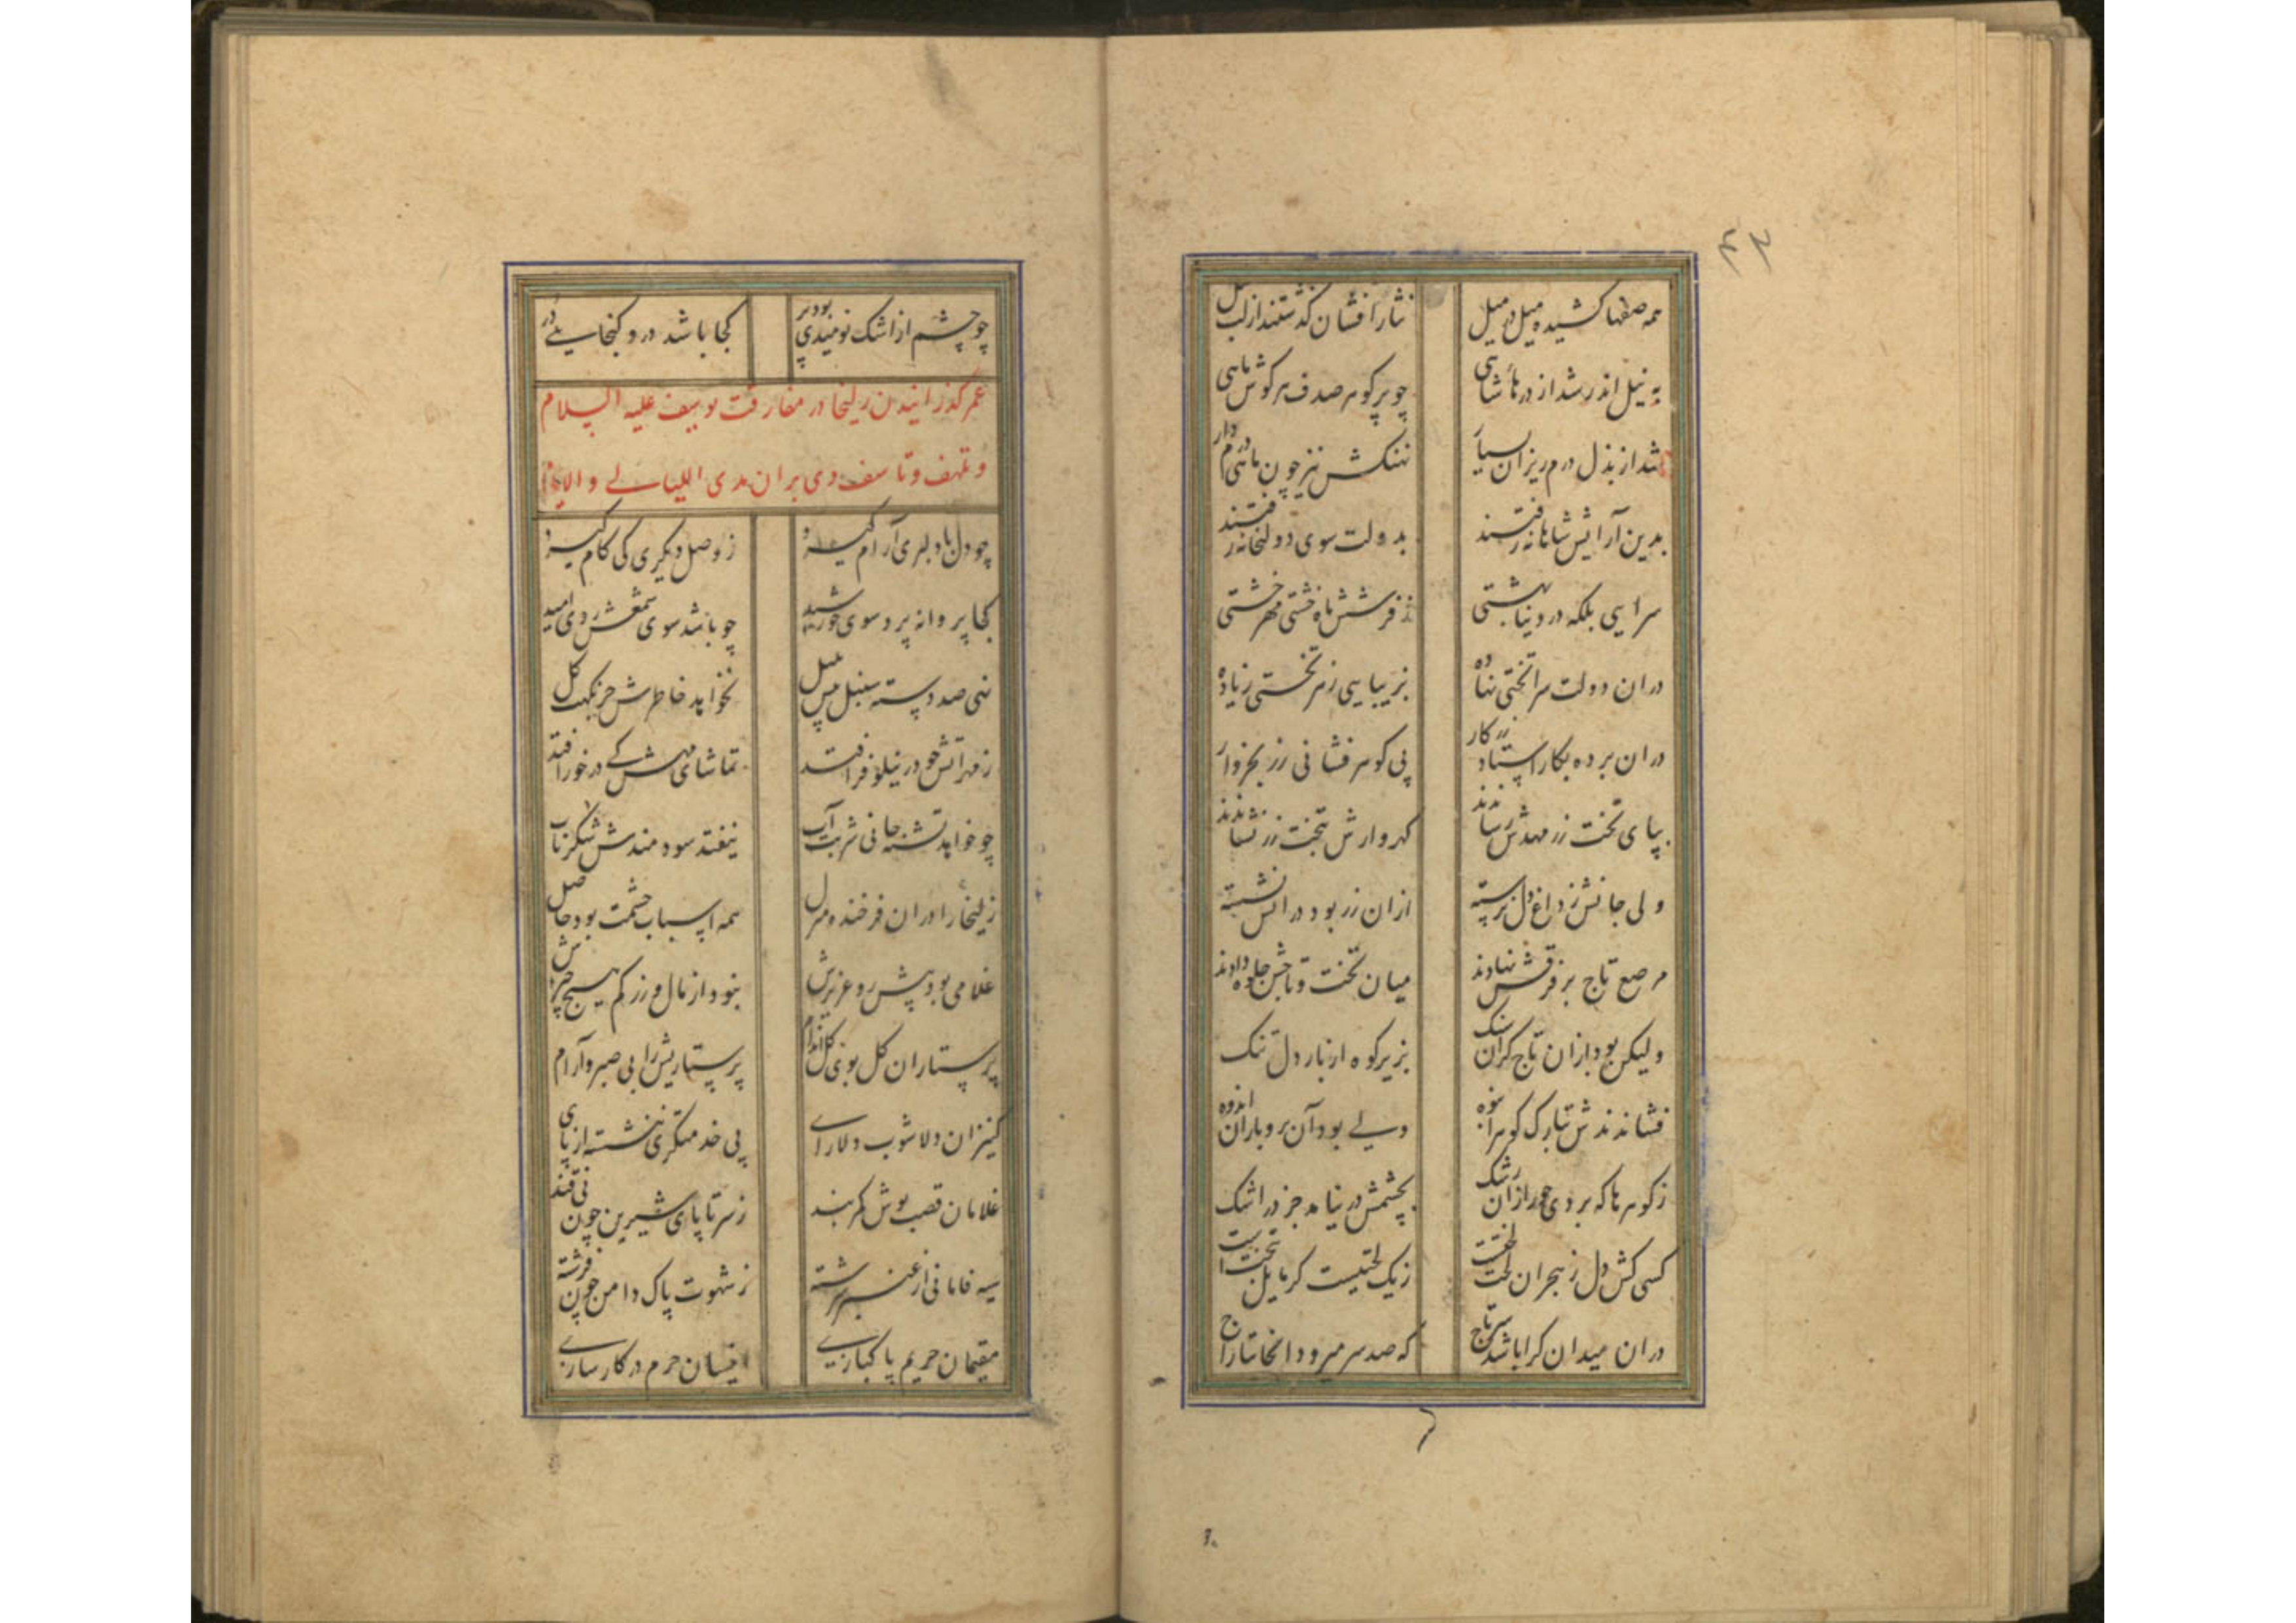 ۴۳
همه صفها کشیده میل در میل نثار افشان گذشتند از لب نیل
به نیل اندر شد از درهای شاهی چو پر گوهر صدف هر گوش ماهی
شد از بذل درم ریزان بسیار نهنگش نیز چون ماهی درم دار
بدین آرایش شاهانه رفتند بدولت سوی دولتخانه رفتند
سرایی بلکه در دنیا بهشتی ز فرشش ماه خشتی مهر خشتی
دران دولت سرا تختی نهاده بزیبایی ز هر تختی زیاده
دران برده بکار استاد زرکار پی گوهر فشانی زر بخروار
بپای تخت زر مهدش رساندند گهروارش بتخت زر نشاندند
ولی جانش ز داغ دل نرسته ازان زر بود در آتش نشسته
مرصع تاج بر فرقش نهادند میان تخت و تاجش جلوه دادند
ولیکن بود ازان تاج گران سنگ بزیر کوه از بار دل تنگ
فشاندندش بتارک گوهر انبوه ولی بود آن برو باران اندوه
ز گوهرها که بردی حور ازان رشک بچشمش در نیامد جز در اشک
کسی کش دل ز هجران لخت لختست ز یک لختیست گر مایل تختست
دران میدان کرا باشد سر تاج که صد سر میرود انجا بتاراج
چو چشم از اشک نومیدی بود پر کجا باشد درو گنجایی در
عمر گذرانیدن زلیخا در مفارقت یوسف علیه السلام
و تلهف و تاسف وی بران مدی اللیالی و الایام
چو دل با دلبری آرام گیرد ز وصل دیگری کی کام گیرد
کجا پروانه پرد سوی خورشید چو باشد سوی شمعش روی امید
نهی صد دسته سنبل پیش بلبل نخواهد خاطرش جز نکهت گل
ز مهر آتش چو در نیلوفر افتد تماشای مهش کی در خور افتد
چو خواهد تشنه جانی شربت آب نیفتد سودمندش شکر ناب
زلیخا را دران فرخنده منزل همه اسباب حشمت بود حاصل
غلامی بود پیش رو عزیزش نبود از مال و زر کم هیچ چیزش
پرستاران گل بوی گل اندام پرستاریش را بی صبر و آرام
کنیزان دلاشوب دلارای پی خدمتگری ننشسته از پای
غلامان قصب پوش کمربند ز سر تا پای شیرین چون نی قند
سیه فامانی از عنبر سرشته ز شهوت پاک دامن چون فرشته
مقیمان حریم پاکبازی انیسان حرم در کارسازی